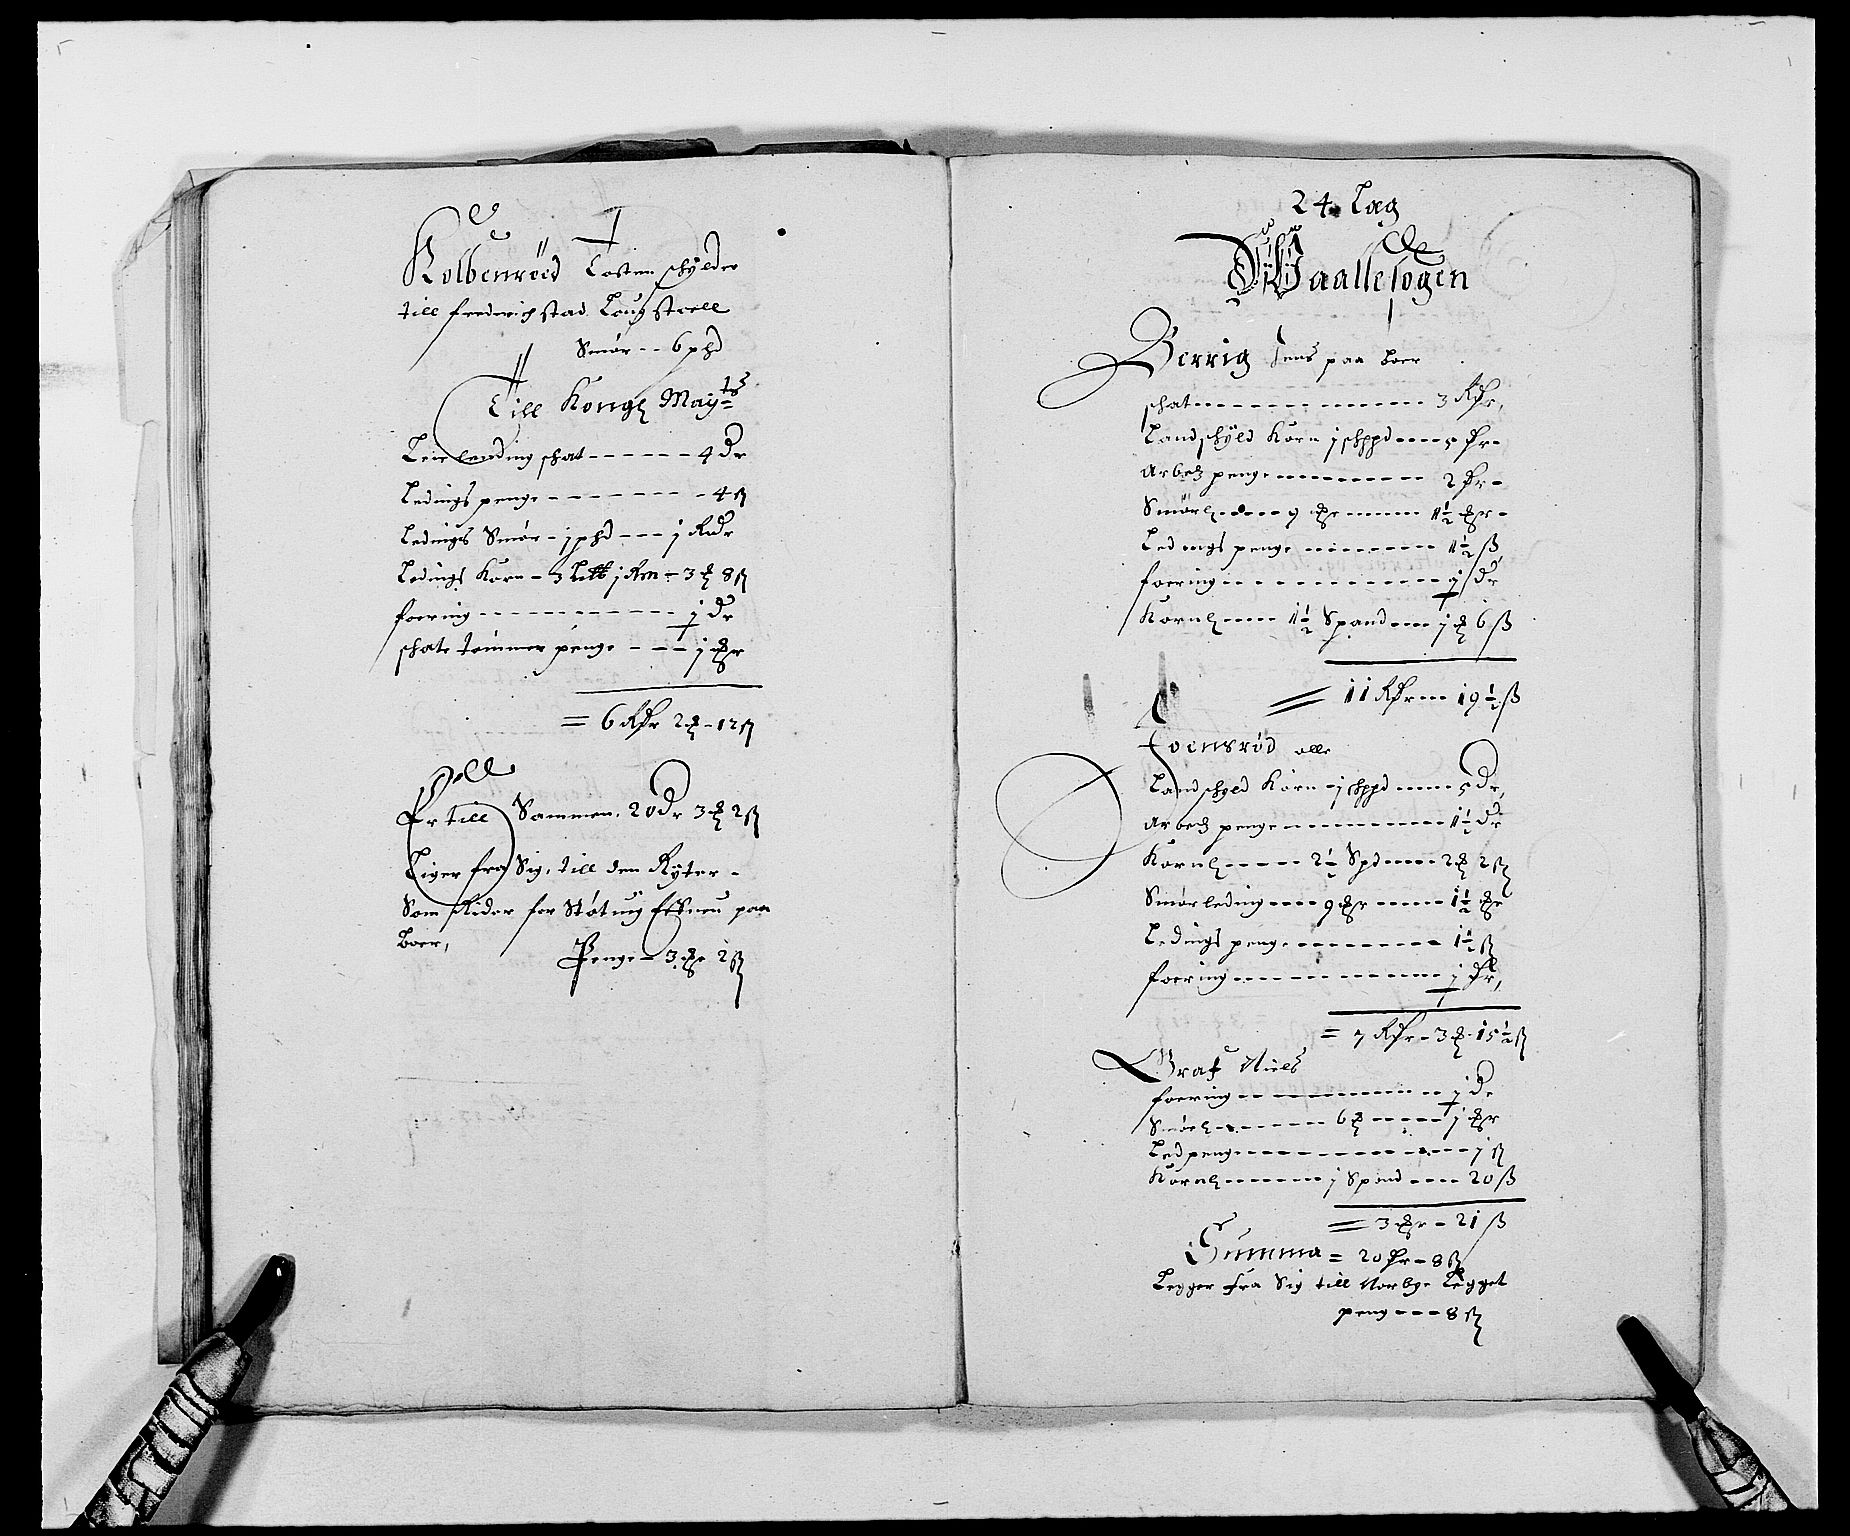 Kolbenrøed Losten schylder
till frederichstad Laugstoell
Smør -- 6 phd
Till Kongl Mayts
Leie lending schat ------ 4 dr
Ledings penge -------- 4 ß
Ledings Smør - j phd --- j Rdr
Ledings Korn - 3 j - 3 8 ß
foering ------------ j dr
schate tømmer penge ---- j
= 6 Rdr 2 - 12 ß
Er till Sammen. 20 dr 3 2 ß
Liger fra Sig, till den Ryter -
Som Rider for paa
boer,
Penge - 3 2 ß
24. Læg
Waalle sogen
Berrig Jens paa boer
schat ------------- 3 Rdr,
Landschyld Korn j schppd ---- 5 dr -
Arbed penge ---------- 2 dr -
Smørl ----- 9 ----- 1½
Ledings penge -------- 1½ ß
foering ------------- j dr
Kornl ---- 1½ Spand --- j 6 ß
11 Rdr -- 19½ ß
alle
Landschyld Korn - j schppd ---- 5 dr,
Arbed penge ---------- 1½ dr
Kornl ----- 2½ Spd ---- 2 2 ß
Smør leding ---- 9 ----- 1½
Ledings penge --------- 1½ ß
foering ------------ j dr,
= 7 Rdr - 3 - 15½ ß
Graf Niels
foering ------------ j dr
Smørl -------- 6 ----- j
Led penge ------------- j ß
Kornl ------ j Spand ---- 20 ß
= 3 - 21 ß
Summa = 20 dr - 8 ß
Legger fra Sig till Norbye Legget
peng --- 8 ß